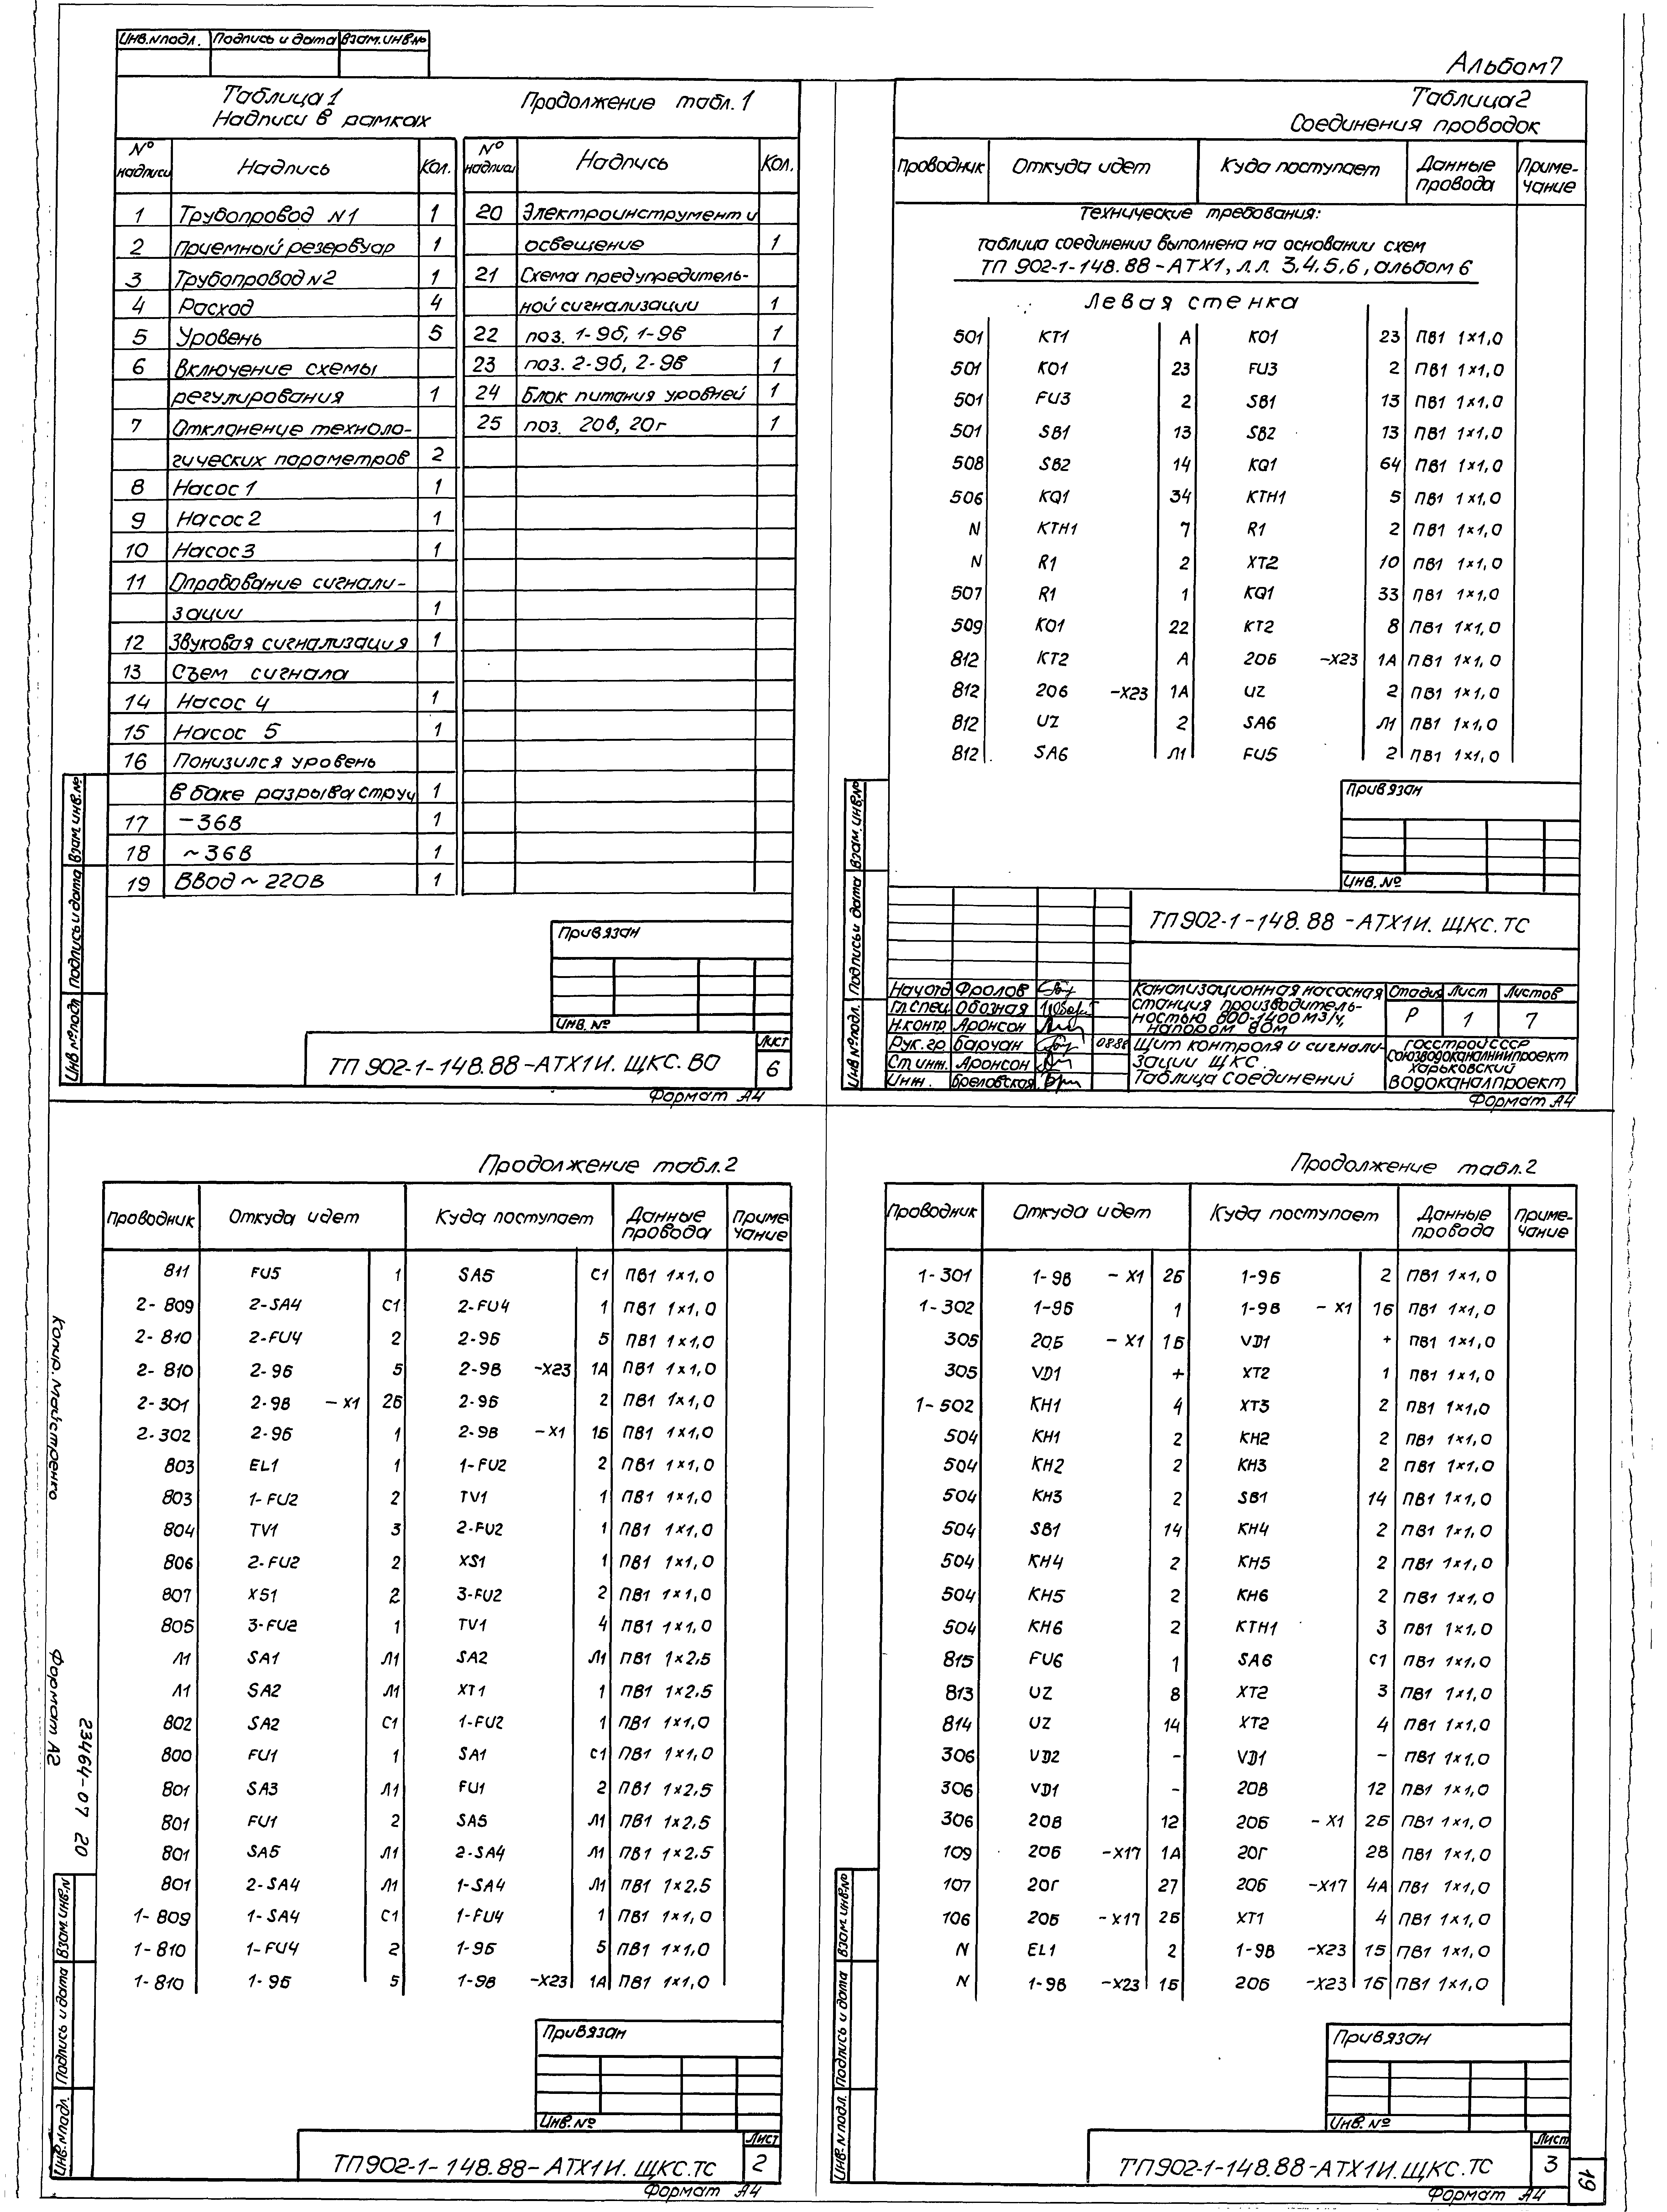 Альбом 7
Инв.№подл. Подпись и дата Взам.инв.№
Таблица 1
Надписи в рамках
Продолжение табл. 1
№ надписи Надпись Кол.
1 Трубопровод N1 1
2 Приемный резервуар 1
3 Трубопровод N2 1
4 Расход 4
5 Уровень 5
6 Включение схемы
регулирования 1
7 Отклонение техноло-
гических параметров 2
8 Насос 1 1
9 Насос 2 1
10 Насос 3 1
11 Опробование сигнали-
зации 1
12 Звуковая сигнализация 1
13 Съем сигнала
14 Насос 4 1
15 Насос 5 1
16 Понизился уровень
в баке разрыва струи 1
17 −36В 1
18 ~36В 1
19 Ввод ~ 220В 1
№ надписи Надпись Кол.
20 Электроинструмент и
освещение 1
21 Схема предупредитель-
ной сигнализации 1
22 поз. 1-9б, 1-9в 1
23 поз. 2-9б, 2-9в 1
24 Блок питания уровней 1
25 поз. 20в, 20г 1
Привязан
Инв. №
ТП 902-1-148.88-АТХ1И. ЩКС. ВО
Лист
6
Формат А4
Инв №подл Подпись и дата Взам.инв.№
Таблица 2
Соединения проводок
Проводник Откуда идет Куда поступает Данные провода Приме-чание
Технические требования:
Таблица соединений выполнена на основании схем
ТП 902-1-148.88-АТХ1, л.л. 3,4,5,6, альбом 6
Левая стенка
501 КТ1 А КQ1 23 ПВ1 1×1,0
501 КQ1 23 FU3 2 ПВ1 1×1,0
501 FU3 2 SB1 13 ПВ1 1×1,0
501 SB1 13 SB2 13 ПВ1 1×1,0
508 SB2 14 КQ1 64 ПВ1 1×1,0
506 КQ1 34 КТН1 5 ПВ1 1×1,0
N КТН1 7 R1 2 ПВ1 1×1,0
N R1 2 ХТ2 10 ПВ1 1×1,0
507 R1 1 КQ1 33 ПВ1 1×1,0
509 КQ1 22 КТ2 8 ПВ1 1×1,0
812 КТ2 А 20б -Х23 1А ПВ1 1×1,0
812 20б -Х23 1А UZ 2 ПВ1 1×1,0
812 UZ 2 SA6 Л1 ПВ1 1×1,0
812 SA6 Л1 FU5 2 ПВ1 1×1,0
Привязан
Инв. №
ТП 902-1-148.88-АТХ1И. ЩКС. ТС
Нач отд Фролов
Гл.спец. Обозная
Н.контр. Аронсон
Рук. гр Баруан 08.88
Ст инж. Аронсон
Инж. Бреловская
Канализационная насосная
станция производитель-
ностью 800-1400 м3/ч,
напором 80м
Щит контроля и сигнали-
зации ЩКС.
Таблица соединений
Стадия Лист Листов
Р 1 7
Госстрой СССР
Союзводоканалниипроект
Харьковский
Водоканалпроект
Формат А4
Инв №подл. Подпись и дата Взам.инв.№
Продолжение табл.2
Проводник Откуда идет Куда поступает Данные провода Приме чание
811 FU5 1 SA5 С1 ПВ1 1×1,0
2-809 2-SA4 С1 2-FU4 1 ПВ1 1×1,0
2-810 2-FU4 2 2-9б 5 ПВ1 1×1,0
2-810 2-9б 5 2-9в -Х23 1А ПВ1 1×1,0
2-301 2-9в -Х1 2б 2-9б 2 ПВ1 1×1,0
2-302 2-9б 1 2-9в -Х1 1б ПВ1 1×1,0
803 EL1 1 1-FU2 2 ПВ1 1×1,0
803 1-FU2 2 TV1 1 ПВ1 1×1,0
804 TV1 3 2-FU2 1 ПВ1 1×1,0
806 2-FU2 2 XS1 1 ПВ1 1×1,0
807 XS1 2 3-FU2 2 ПВ1 1×1,0
805 3-FU2 1 TV1 4 ПВ1 1×1,0
Л1 SA1 Л1 SA2 Л1 ПВ1 1×2,5
Л1 SA2 Л1 ХТ1 1 ПВ1 1×2,5
802 SA2 С1 1-FU2 1 ПВ1 1×1,0
800 FU1 1 SA1 С1 ПВ1 1×1,0
801 SA3 Л1 FU1 2 ПВ1 1×2,5
801 FU1 2 SA5 Л1 ПВ1 1×2,5
801 SA5 Л1 2-SA4 Л1 ПВ1 1×2,5
801 2-SA4 Л1 1-SA4 Л1 ПВ1 1×2,5
1-809 1-SA4 С1 1-FU4 1 ПВ1 1×1,0
1-810 1-FU4 2 1-9б 5 ПВ1 1×1,0
1-810 1-9б 5 1-9в -Х23 1А ПВ1 1×1,0
Привязан
Инв. №
ТП902-1-148.88-АТХ1И. ЩКС. ТС
Лист
2
Формат А4
Инв.№подл. Подпись и дата Взам.инв.№
Формат А2
23464-07 20
Продолжение табл.2
Проводник Откуда идет Куда поступает Данные провода Приме-чание
1-301 1-9в -Х1 2б 1-9б 2 ПВ1 1×1,0
1-302 1-9б 1 1-9в -Х1 1б ПВ1 1×1,0
305 20б -Х1 1б VD1 + ПВ1 1×1,0
305 VD1 + ХТ2 1 ПВ1 1×1,0
1-502 КН1 4 ХТ3 2 ПВ1 1×1,0
504 КН1 2 КН2 2 ПВ1 1×1,0
504 КН2 2 КН3 2 ПВ1 1×1,0
504 КН3 2 SB1 14 ПВ1 1×1,0
504 SB1 14 КН4 2 ПВ1 1×1,0
504 КН4 2 КН5 2 ПВ1 1×1,0
504 КН5 2 КН6 2 ПВ1 1×1,0
504 КН6 2 КТН1 3 ПВ1 1×1,0
815 FU6 1 SA6 С1 ПВ1 1×1,0
813 UZ 8 ХТ2 3 ПВ1 1×1,0
814 UZ 14 ХТ2 4 ПВ1 1×1,0
306 VD2 - VD1 - ПВ1 1×1,0
306 VD1 - 20в 12 ПВ1 1×1,0
306 20в 12 20б -Х1 2б ПВ1 1×1,0
109 20б -Х17 1А 20г 28 ПВ1 1×1,0
107 20г 27 20б -Х17 4А ПВ1 1×1,0
106 20б -Х17 2б ХТ1 4 ПВ1 1×1,0
N EL1 2 1-9в -Х23 1б ПВ1 1×1,0
N 1-9в -Х23 1б 20б -Х23 1б ПВ1 1×1,0
Привязан
Инв. №
ТП902-1-148.88-АТХ1И.ЩКС.ТС
Лист
3
Формат А4
Инв.№подл. Подпись и дата Взам.инв.№
19